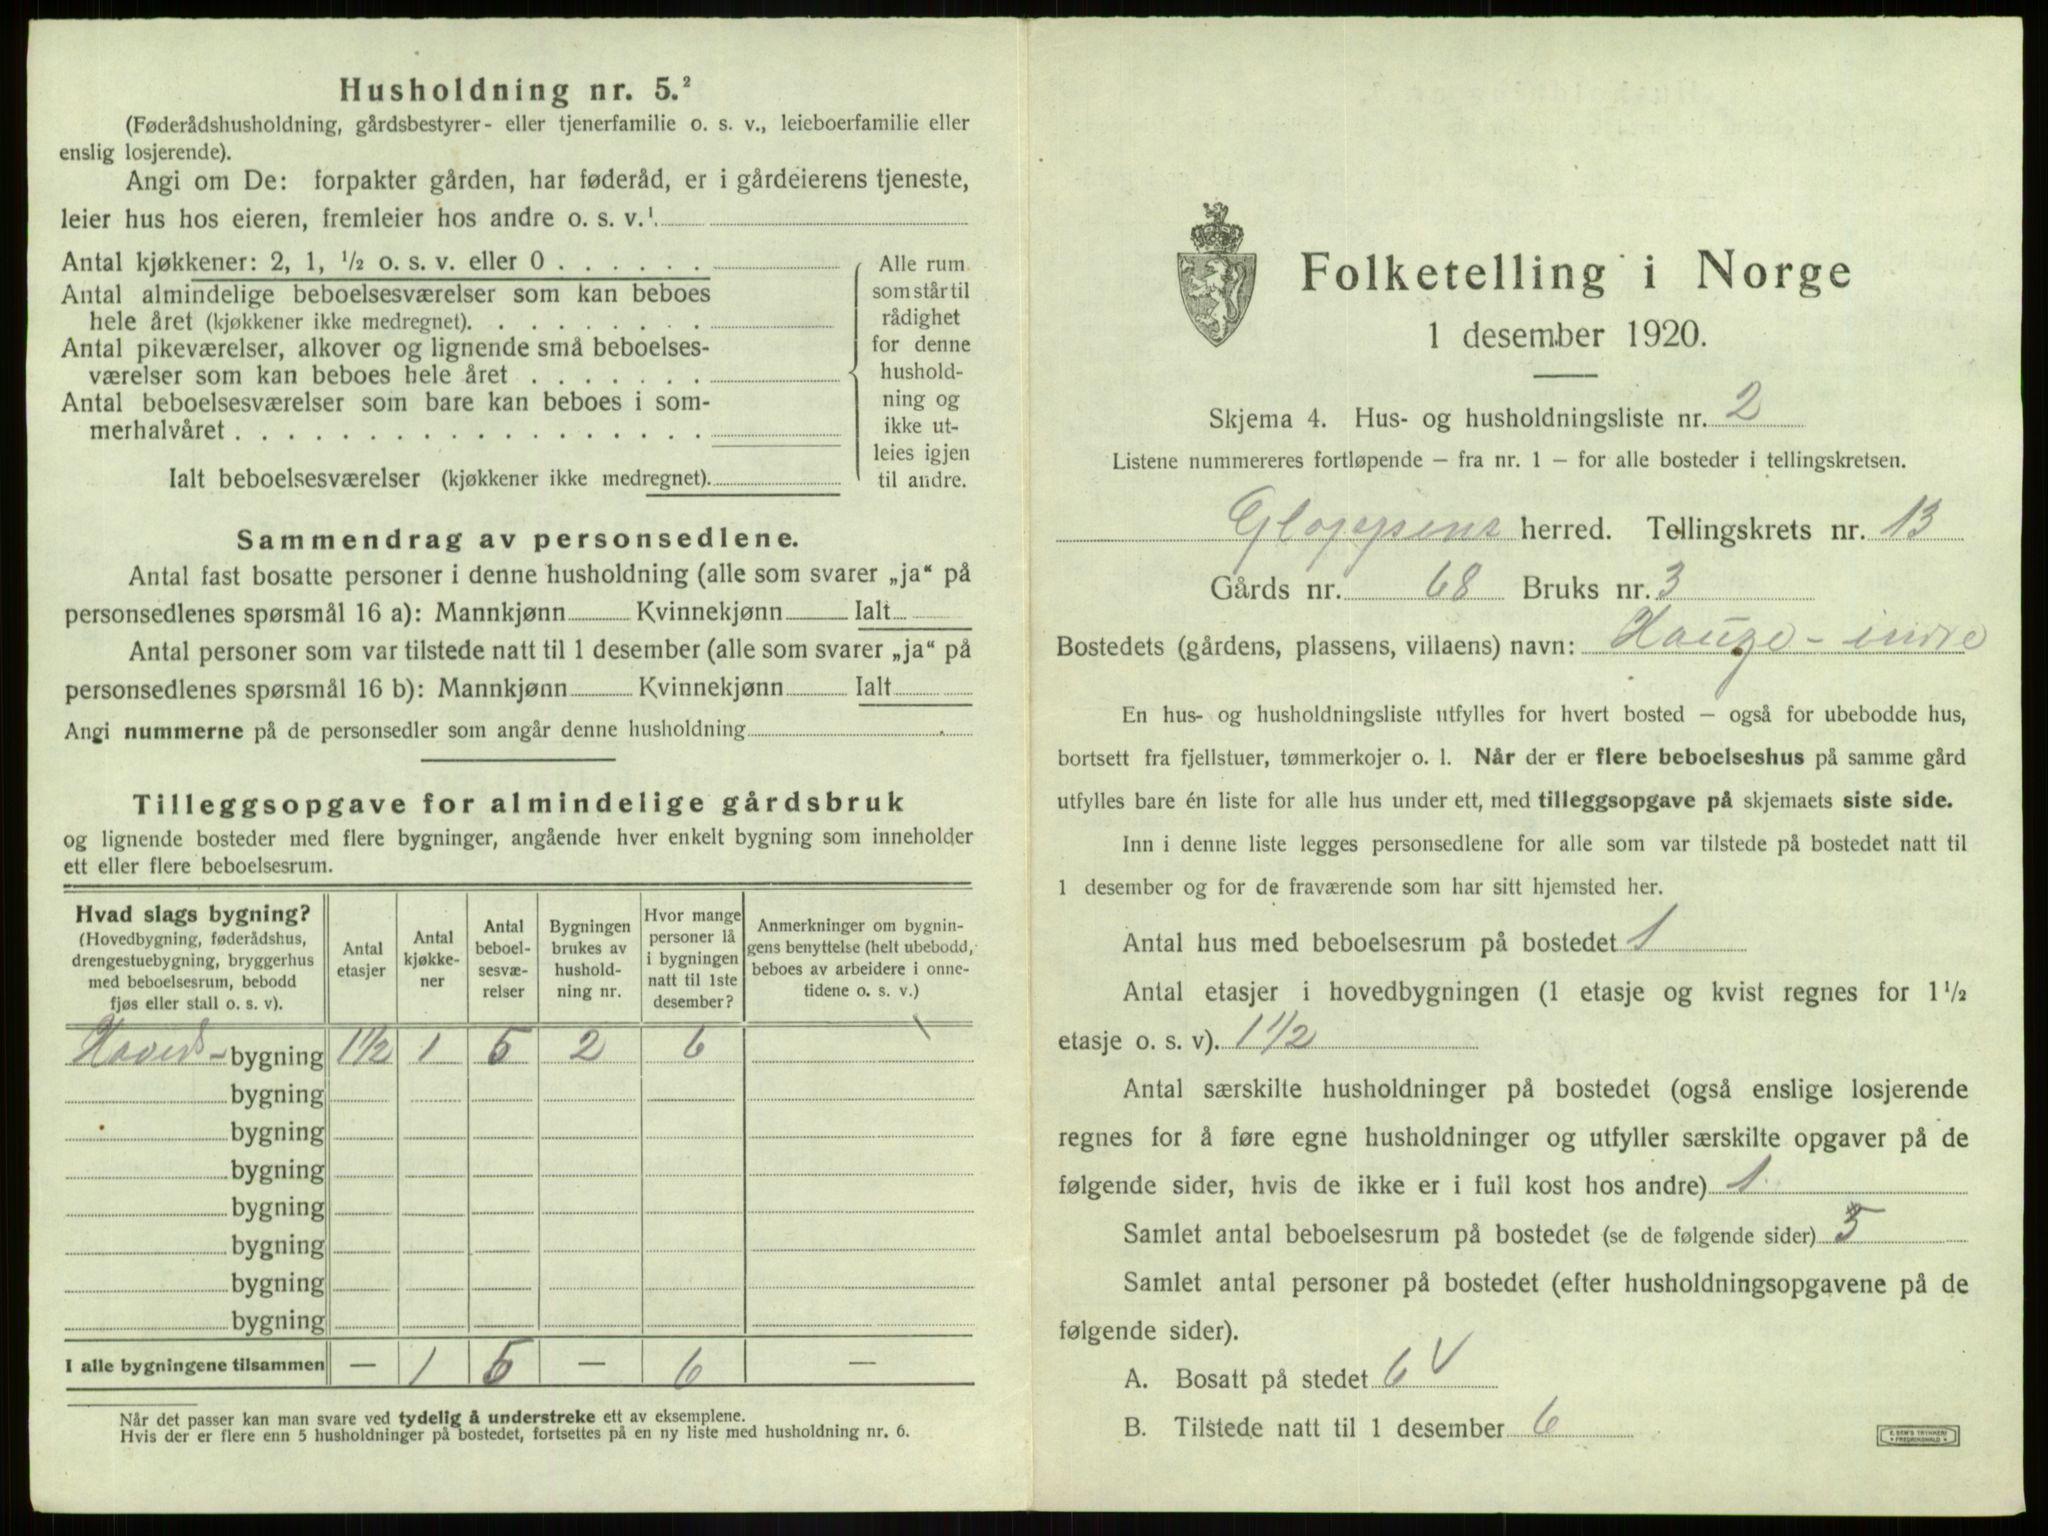 Husholdning nr. 5.²
(Føderådshusholdning, gårdsbestyrer- eller tjenerfamilie o. s. v., leieboerfamilie eller
enslig losjerende).
Angi om De: forpakter gården, har føderåd, er i gårdeierens tjeneste,
leier hus hos eieren, fremleier hos andre o. s. v.¹
Antal kjøkkener: 2, 1, ½ o. s. v. eller 0
Antal almindelige beboelsesværelser som kan beboes
hele året (kjøkkener ikke medregnet).
Antal pikeværelser, alkover og lignende små beboelses-
værelser som kan beboes hele året
Antal beboelsesværelser som bare kan beboes i som-
merhalvåret
Ialt beboelsesværelser (kjøkkener ikke medregnet).
Alle rum
som står til
rådighet
for denne
hushold-
ning og
ikke ut-
leies igjen
til andre.
Sammendrag av personsedlene.
Antal fast bosatte personer i denne husholdning (alle som svarer „ja“ på
personsedlenes spørsmål 16 a): Mannkjønn Kvinnekjønn Ialt
Antal personer som var tilstede natt til 1 desember (alle som svarer „ja“ på
personsedlenes spørsmål 16 b): Mannkjønn Kvinnekjønn Ialt
Angi nummerne på de personsedler som angår denne husholdning
Tilleggsopgave for almindelige gårdsbruk
og lignende bosteder med flere bygninger, angående hver enkelt bygning som inneholder
ett eller flere beboelsesrum.
Hvad slags bygning?
(Hovedbygning, føderådshus,
drengestuebygning, bryggerhus
med beboelsesrum, bebodd
fjøs eller stall o. s. v).
Antal
etasjer
Antal
kjøkke-
ner
Antal
beboel-
sesvæ-
relser
Bygningen
brukes av
hushold-
ning nr.
Hvor mange
personer lå
i bygningen
natt til 1ste
desember?
Anmerkninger om bygnin-
gens benyttelse (helt ubebodd,
beboes av arbeidere i onne-
tidene o. s. v.)
Hoved-bygning 1½ 1 5 2 6
bygning
bygning
bygning
bygning
bygning
bygning
bygning
I alle bygningene tilsammen — 1 5 — 6 —
Når det passer kan man svare ved tydelig å understreke ett av eksemplene.
Hvis der er flere enn 5 husholdninger på bostedet, fortsettes på en ny liste med husholdning nr. 6.
Folketelling i Norge
1 desember 1920.
Skjema 4. Hus- og husholdningsliste nr. 2
Listene nummereres fortløpende – fra nr. 1 – for alle bosteder i tellingskretsen.
Gloppens herred. Tellingskrets nr. 13
Gårds nr. 68 Bruks nr. 3
Bostedets (gårdens, plassens, villaens) navn: Hauge - indre
En hus- og husholdningsliste utfylles for hvert bosted – også for ubebodde hus,
bortsett fra fjellstuer, tømmerkojer o. l. Når der er flere beboelseshus på samme gård
utfylles bare én liste for alle hus under ett, med tilleggsopgave på skjemaets siste side.
Inn i denne liste legges personsedlene for alle som var tilstede på bostedet natt til
1 desember og for de fraværende som har sitt hjemsted her.
Antal hus med beboelsesrum på bostedet 1
Antal etasjer i hovedbygningen (1 etasje og kvist regnes for 1 ½
etasje o. s. v). 1½
Antal særskilte husholdninger på bostedet (også enslige losjerende
regnes for å føre egne husholdninger og utfyller særskilte opgaver på de
følgende sider, hvis de ikke er i full kost hos andre) 1
Samlet antal beboelsesrum på bostedet (se de følgende sider) 5
Samlet antal personer på bostedet (efter husholdningsopgavene på de
følgende sider).
A. Bosatt på stedet 6 V
B. Tilstede natt til 1 desember 6
E. SEM'S TRYKKERI
FREDRIKSHALD